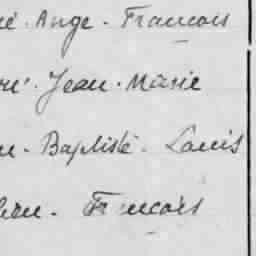 né. Ange. Francois
né. Jean. Marie
n. Baptiste. Louis
Francois